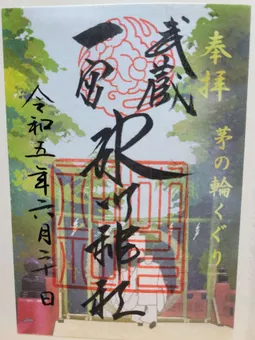 奉拝
茅の輪くぐり
武蔵
一宮
氷川神社
令和五年六月二十日